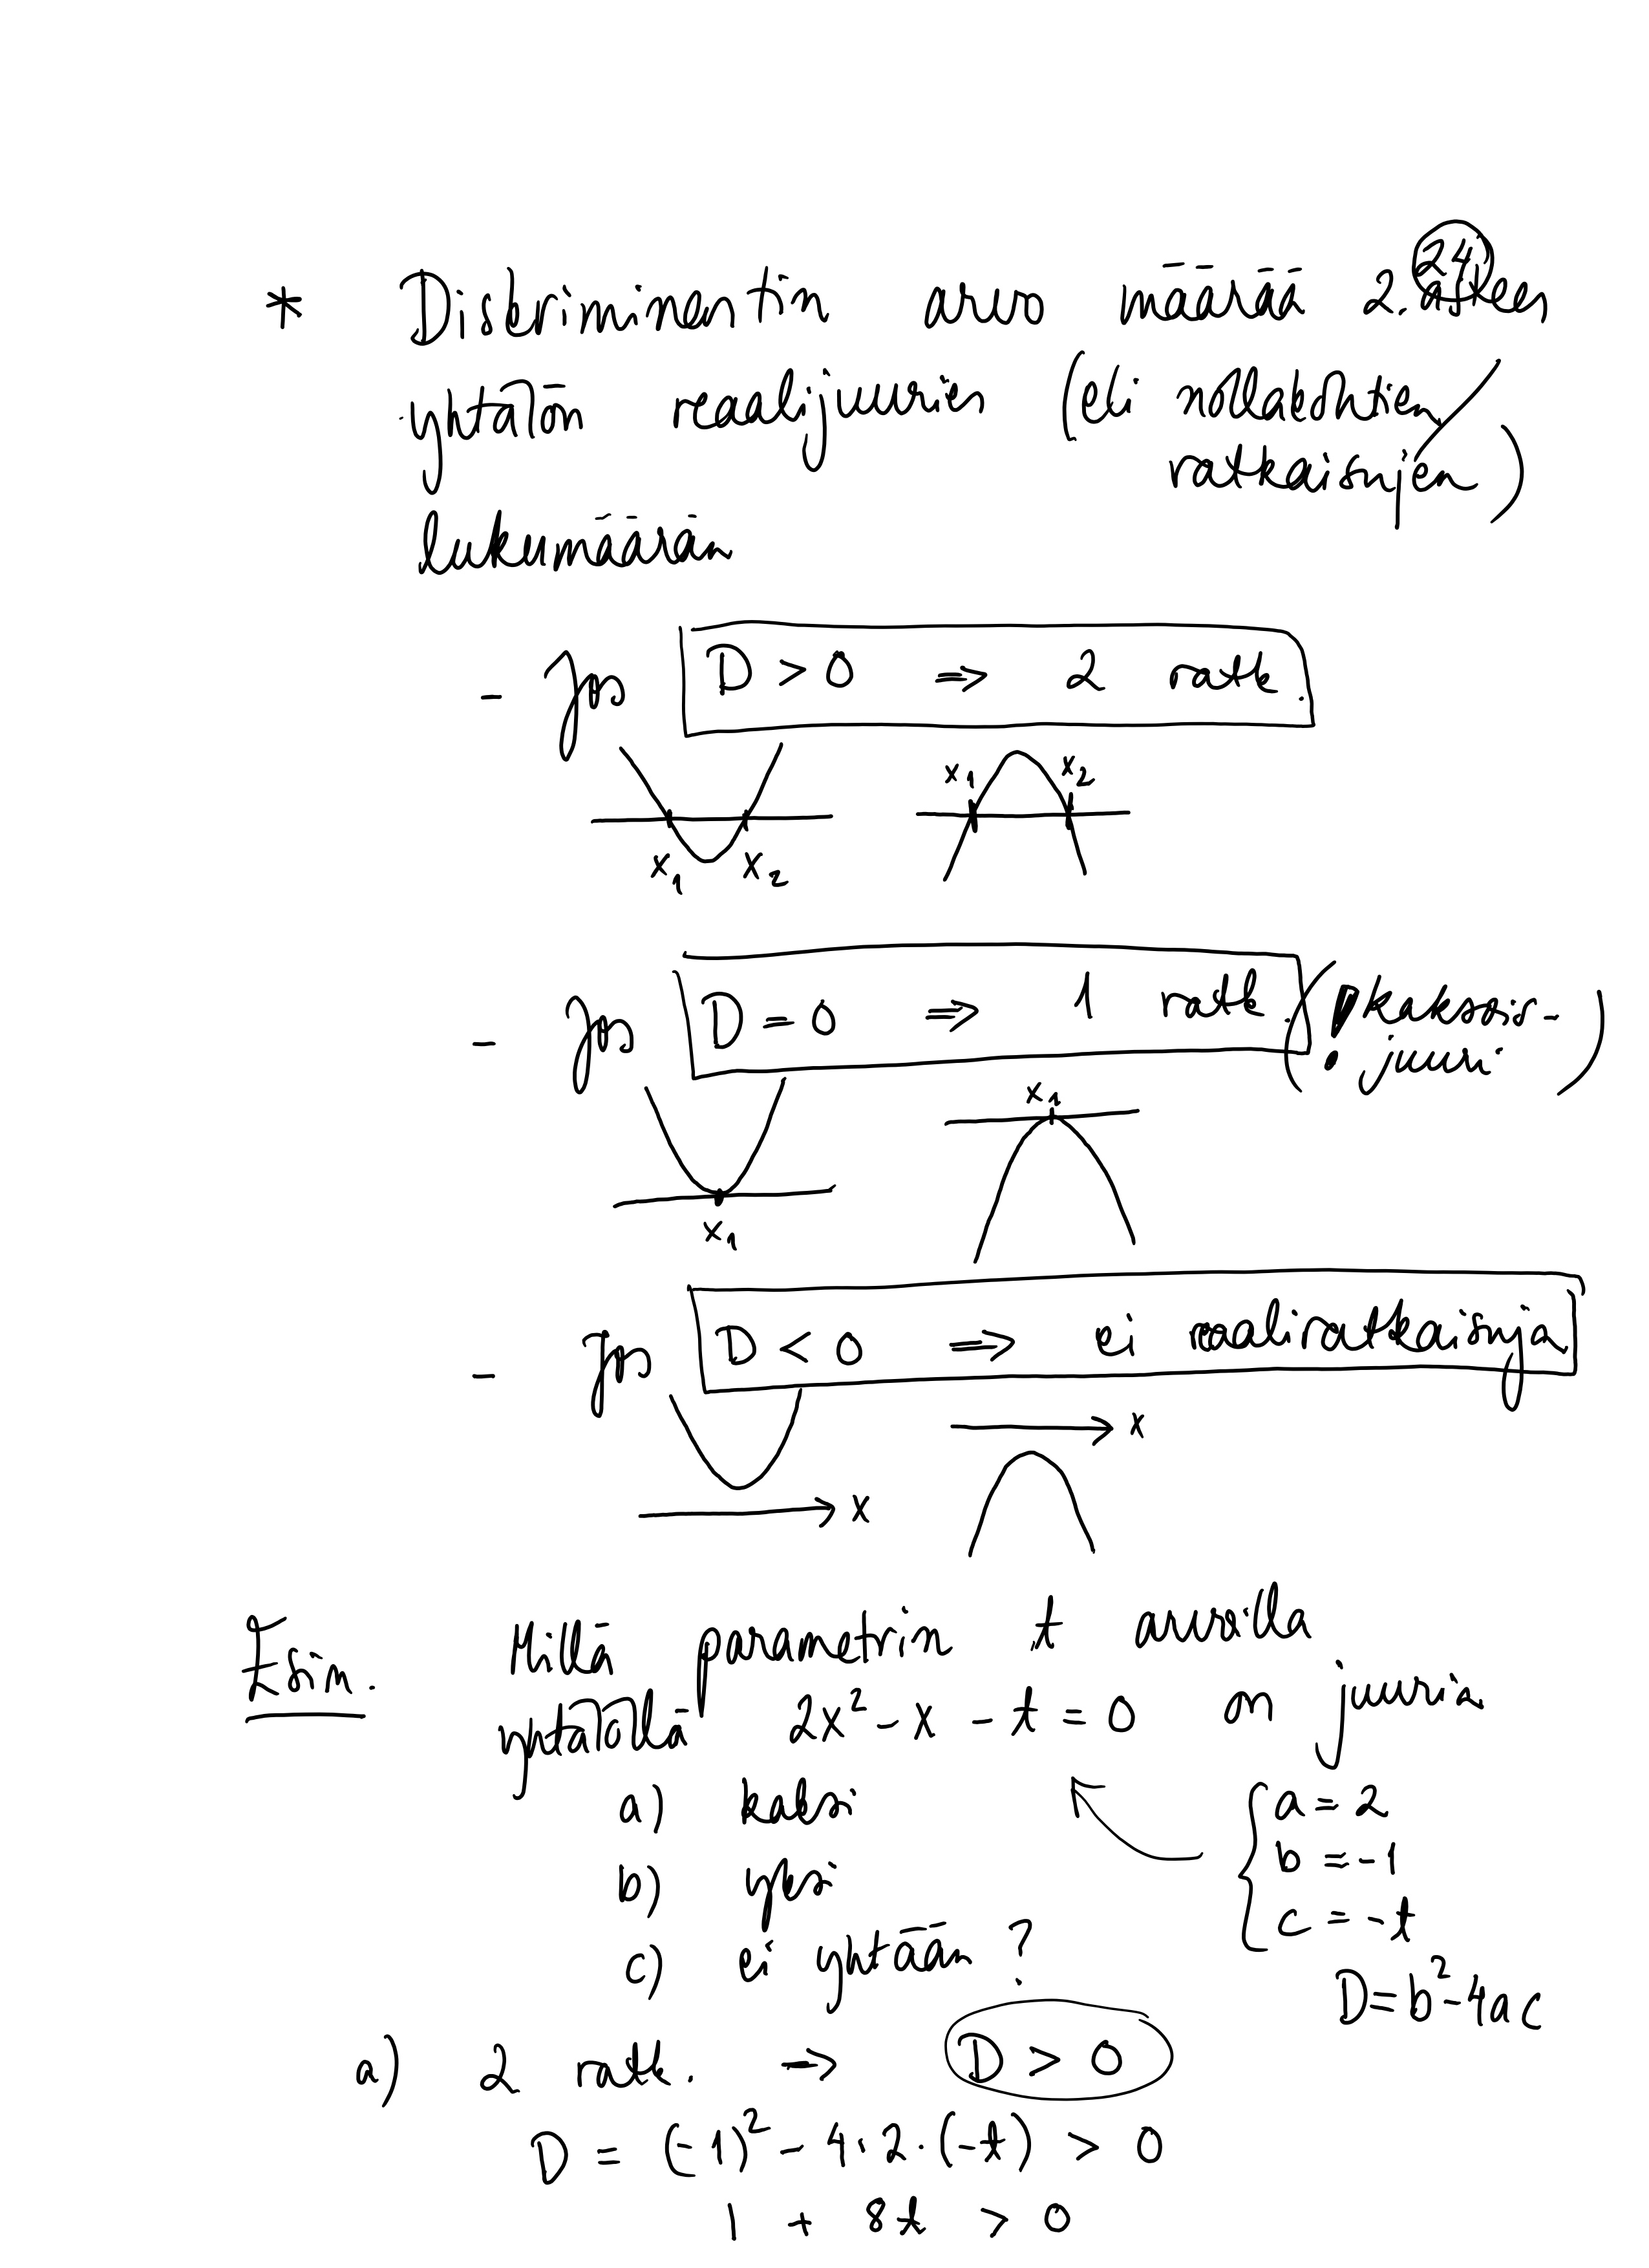 24
* Diskriminantin arvo määrää 2. asteen
yhtälön reaalijuurien (eli nollakohtien/
ratkaisujen)
lukumäärän
- Jos D > 0 ⇒ 2 ratk.
x₁ x₂
x₁ x₂
- Jos D = 0 ⇒ 1 ratk. (! kaksois-
juuri)
x₁
x₁
- Jos D < 0 ⇒ ei reaaliratkaisuja
x
x
Esim. Millä parametrin t arvoilla
yhtälöllä 2x² - x - t = 0 on juuria
a) kaksi
b) yksi
c) ei yhtään ?
a = 2
b = -1
c = -t
D = b² - 4ac
a) 2 ratk. → D > 0
D = (-1)² - 4 · 2 · (-t) > 0
1 + 8t > 0